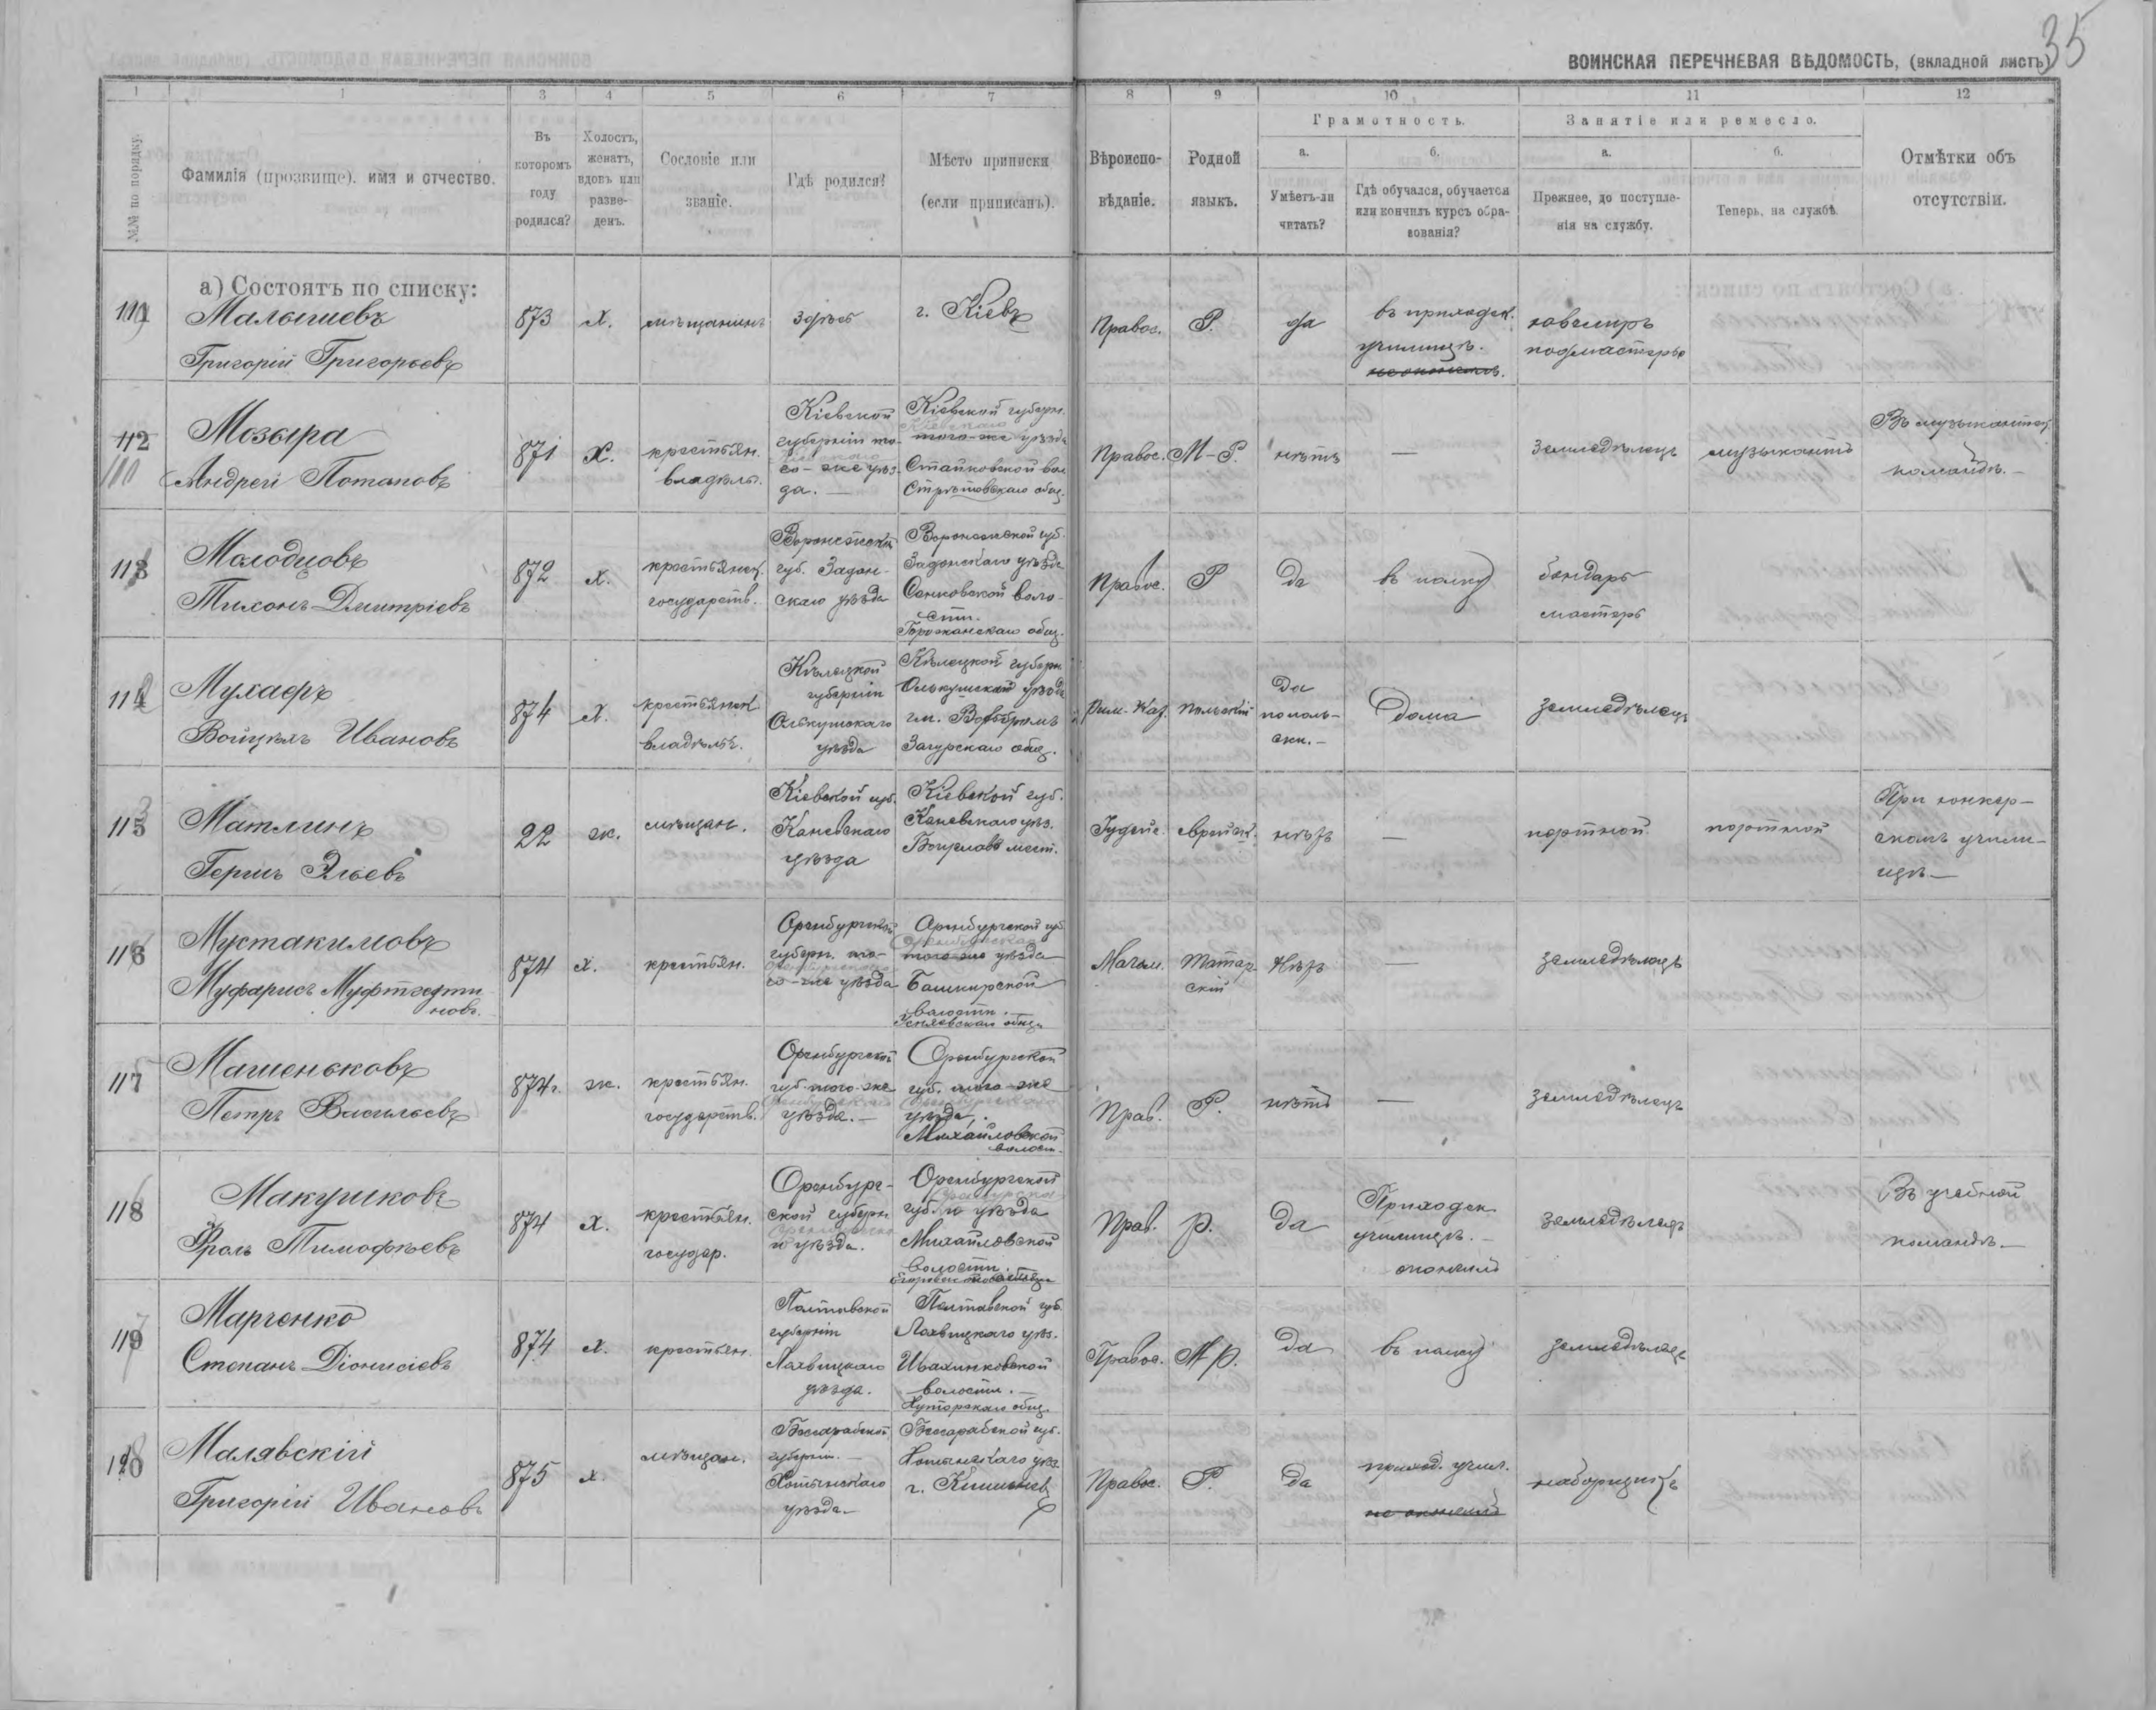 35
ВОИНСКАЯ ПЕРЕЧНЕВАЯ ВѢДОМОСТЬ, (вкладной листъ)
1 1 3 4 5 6 7 8 9 10 11 12
№№ по порядку.
Фамилія (прозвище). имя и отчество.
Въ которомъ году родился?
Холостъ, женатъ, вдовъ или разведенъ.
Сословіе или званіе.
Гдѣ родился?
Мѣсто приписки (если приписанъ).
Вѣроисповѣданіе.
Родной языкъ.
Грамотность.
а. Умѣетъ-ли читать?
б. Гдѣ обучался, обучается или кончилъ курсъ образованія?
Занятіе или ремесло.
а. Прежнее, до поступленія на службу.
б. Теперь, на службѣ.
Отмѣтки объ отсутствіи.
а) Состоятъ по списку:
Малышевъ
Григорій Григорьевъ
873 х. мѣщанинъ здѣсь г. Кіевъ Правос. Р. да
въ приходск.
училищѣ.
не окончилъ.
ювелиръ
подмастерье
112
110
Мозыра
Андрей Потаповъ
871 Х.
крестьян.
владѣль.
Кіевской
губерніи то-
го-же уѣз
да.
Кіевской губерн.
Кіевскаго
того-же уѣзда
Стайковской вол
Стрѣтовскаго общ.
Правос. М-Р. нѣтъ — земледѣлецъ музыкантъ
Въ музыкантск
командѣ.
113
Молодцовъ
Тихонъ Дмитріевъ
872 х.
крестьянск.
государств.
Воронежской
губ. Задон-
скаго уѣзда
Воронежской губ.
Задонскаго уѣзда
Сенковской воло-
сти.
Горожанскаго общ.
Правос. Р да въ полку
бондарь
мастеръ
114
Мухаеръ
Войцѣхъ Ивановъ
874 х.
крестьянск
владѣльч.
Кѣлецкой
губерніи
Олькушскаго
уѣзда
Кѣлецкой губерн.
Олькушскаго уѣзда
Загурскаго общ.
Рим.-Кат. польскій
да
по поль-
ски.
Дома земледѣлецъ
115
Матлинъ
Гершъ Эльевъ
22 ж. мѣщан.
Кіевской губ.
Каневскаго
уѣзда
Кіевской губ.
Каневскаго уѣз.
Богуслава мест.
Іудейс. еврейск. нѣтъ — портной портной
При юнкер-
скомъ учили-
щѣ
116
Мустакимовъ
Муфарисъ Муфтѣхтди
новъ.
874 х. крестьян.
Оренбургской
губерн. то-
го-же уѣзда
Оренбургской губ
того-же уѣзда
Башкирской
волости.
Магом.
Татар-
скій
Нѣтъ — земледѣлецъ
117
Машенсковъ
Петръ Васильевъ
874г. ж.
крестьян.
государств.
Оренбургской
губ. того-же
уѣзда.
Оренбургской
губ. того-же
уѣзда,
Михайловской
волост.
Прав. Р. нѣтъ — земледѣлецъ
118
Макушковъ
Фролъ Тимофѣевъ
874 х.
крестьян.
государ.
Оренбург-
ской губерн
и уѣзда.
Оренбургской
губ. и уѣзда
Михайловской
волости.
Прав. р. да
Приходск
училищѣ.
окончилъ
земледѣлецъ
Въ учебной
командѣ.
119
Марченко
Степанъ Діонисіевъ
874 х. крестьян.
Полтавской
губерніи
Лохвицкаго
уѣзда.
Полтавской губ.
Лохвицкаго уѣз.
Ивахниковской
волости.
Хуторскаго общ.
Правос. М р. да въ полку земледѣлецъ
120
Малявскій
Григорій Ивановъ
875 х мѣщан.
Бессарабской
губерніи.
Хотинскаго
уѣзда
Бессарабской губ.
Хотинскаго уѣз.
г. Кишиневъ
Правос. Р. да
приход. учил.
не окончилъ
наборщикъ